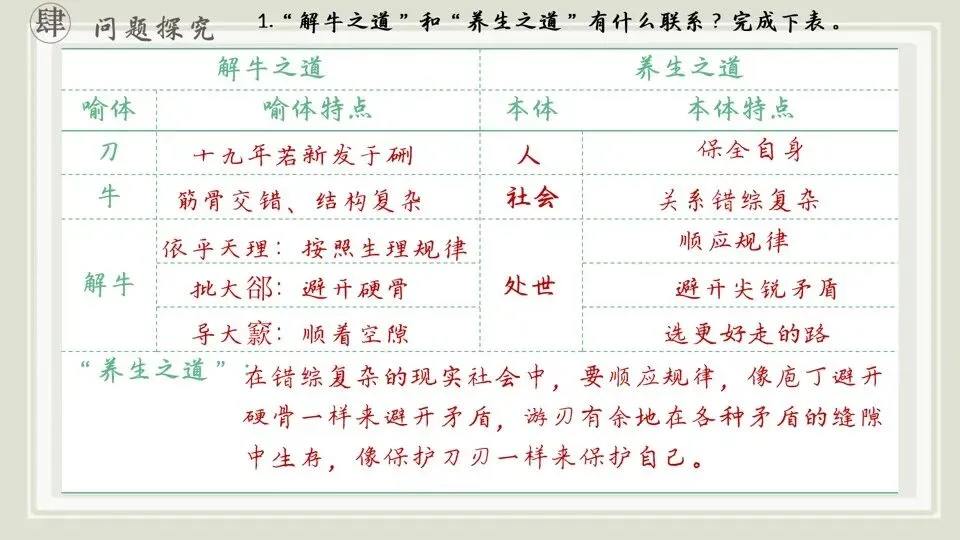 肆 问题探究
1.“解牛之道”和“养生之道”有什么联系？完成下表。
解牛之道 养生之道
喻体 喻体特点 本体 本体特点
刀 十九年若新发于硎 人 保全自身
牛 筋骨交错、结构复杂 社会 关系错综复杂
解牛 依乎天理：按照生理规律 处世 顺应规律
批大郤：避开硬骨 避开尖锐矛盾
导大窾：顺着空隙 选更好走的路
“养生之道”：在错综复杂的现实社会中，要顺应规律，像庖丁避开
硬骨一样来避开矛盾，游刃有余地在各种矛盾的缝隙
中生存，像保护刀刃一样来保护自己。